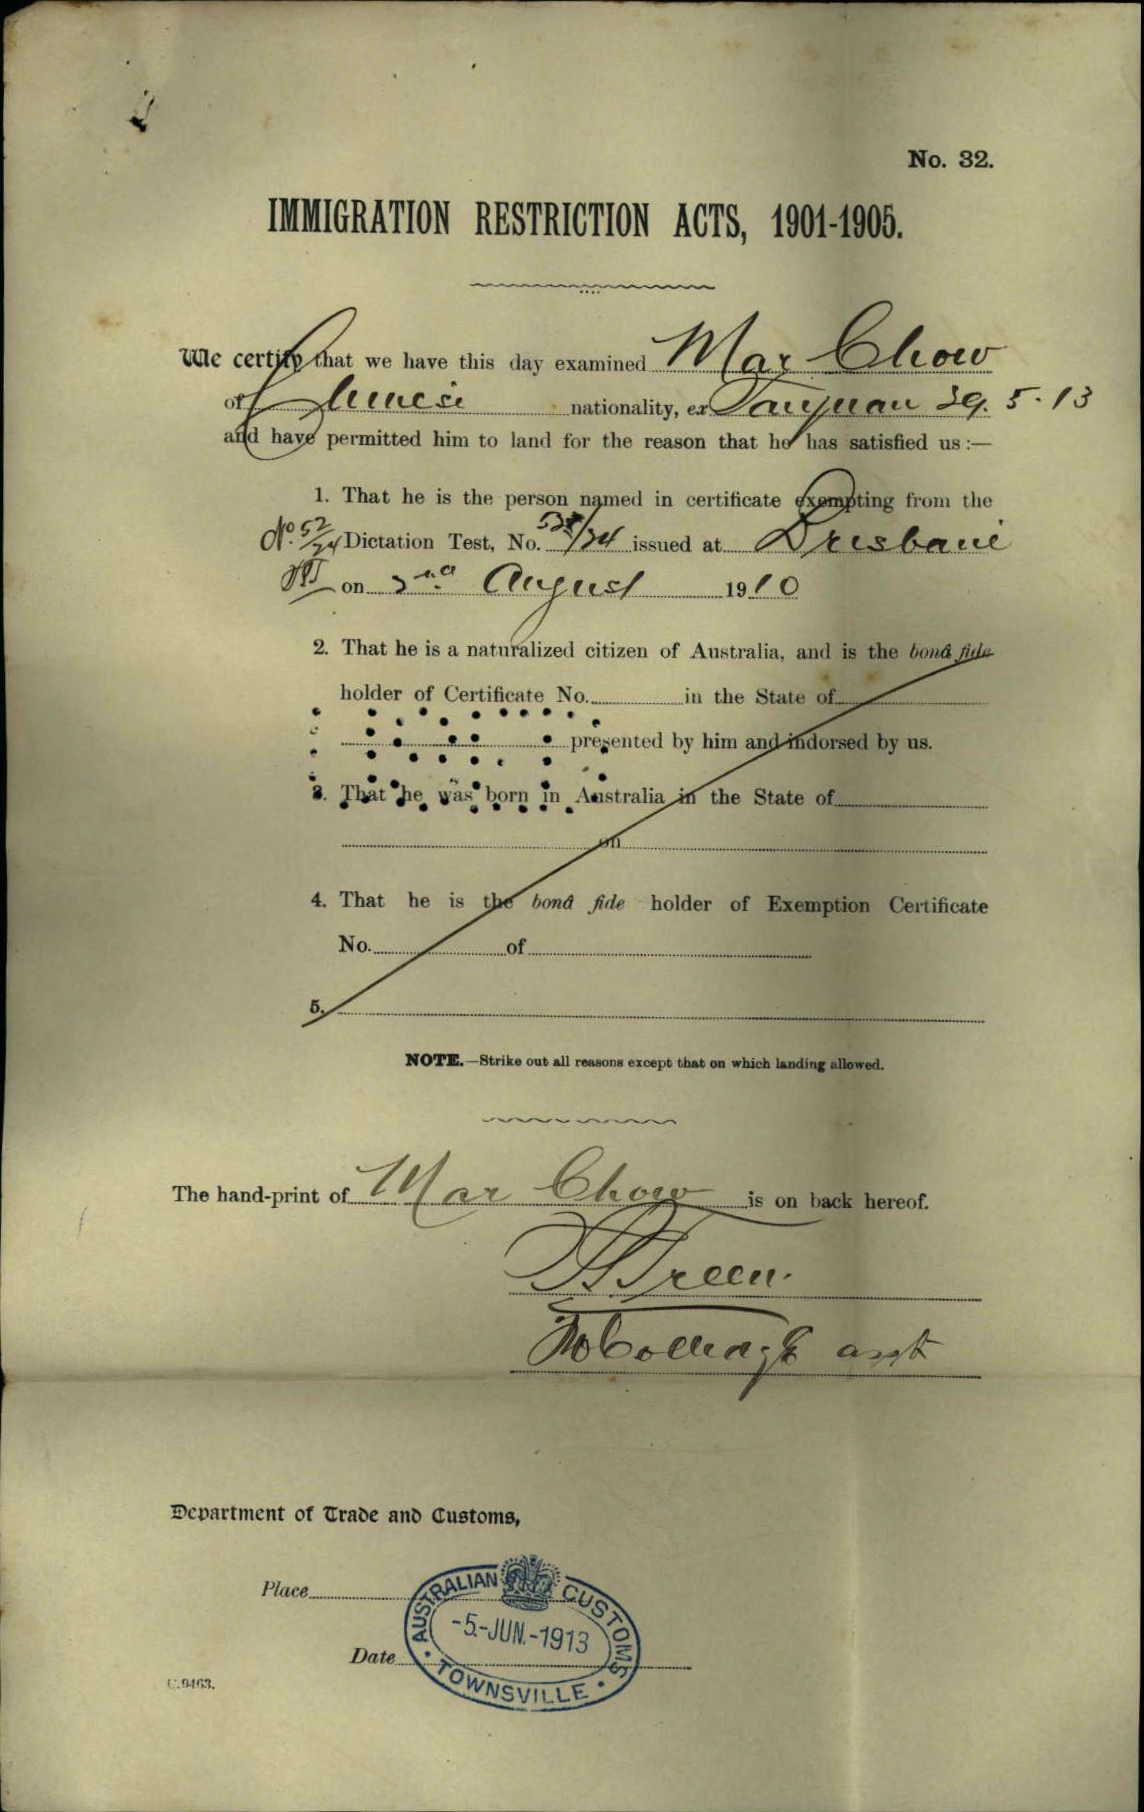 No. 32.
IMMIGRATION RESTRICTION ACTS, 1901-1905.
We certify that we have this day examined Mar Chow
of Chinese nationality, ex Taiyuan 29. 5. 13
and have permitted him to land for the reason that he has satisfied us :—
1. That he is the person named in certificate exempting from the
No. 52/24 Dictation Test, No. /24 issued at Brisbane
on 2nd August 1910
2. That he is a naturalized citizen of Australia, and is the bonâ fide
holder of Certificate No. in the State of
presented by him and indorsed by us.
3. That he was born in Australia in the State of
on
4. That he is the bonâ fide holder of Exemption Certificate
No. of
5.
NOTE.—Strike out all reasons except that on which landing allowed.
The hand-print of Mar Chow is on back hereof.
Department of Trade and Customs,
Place
Date
AUSTRALIAN CUSTOMS
-5.-JUN.-1913
TOWNSVILLE
C.9463.